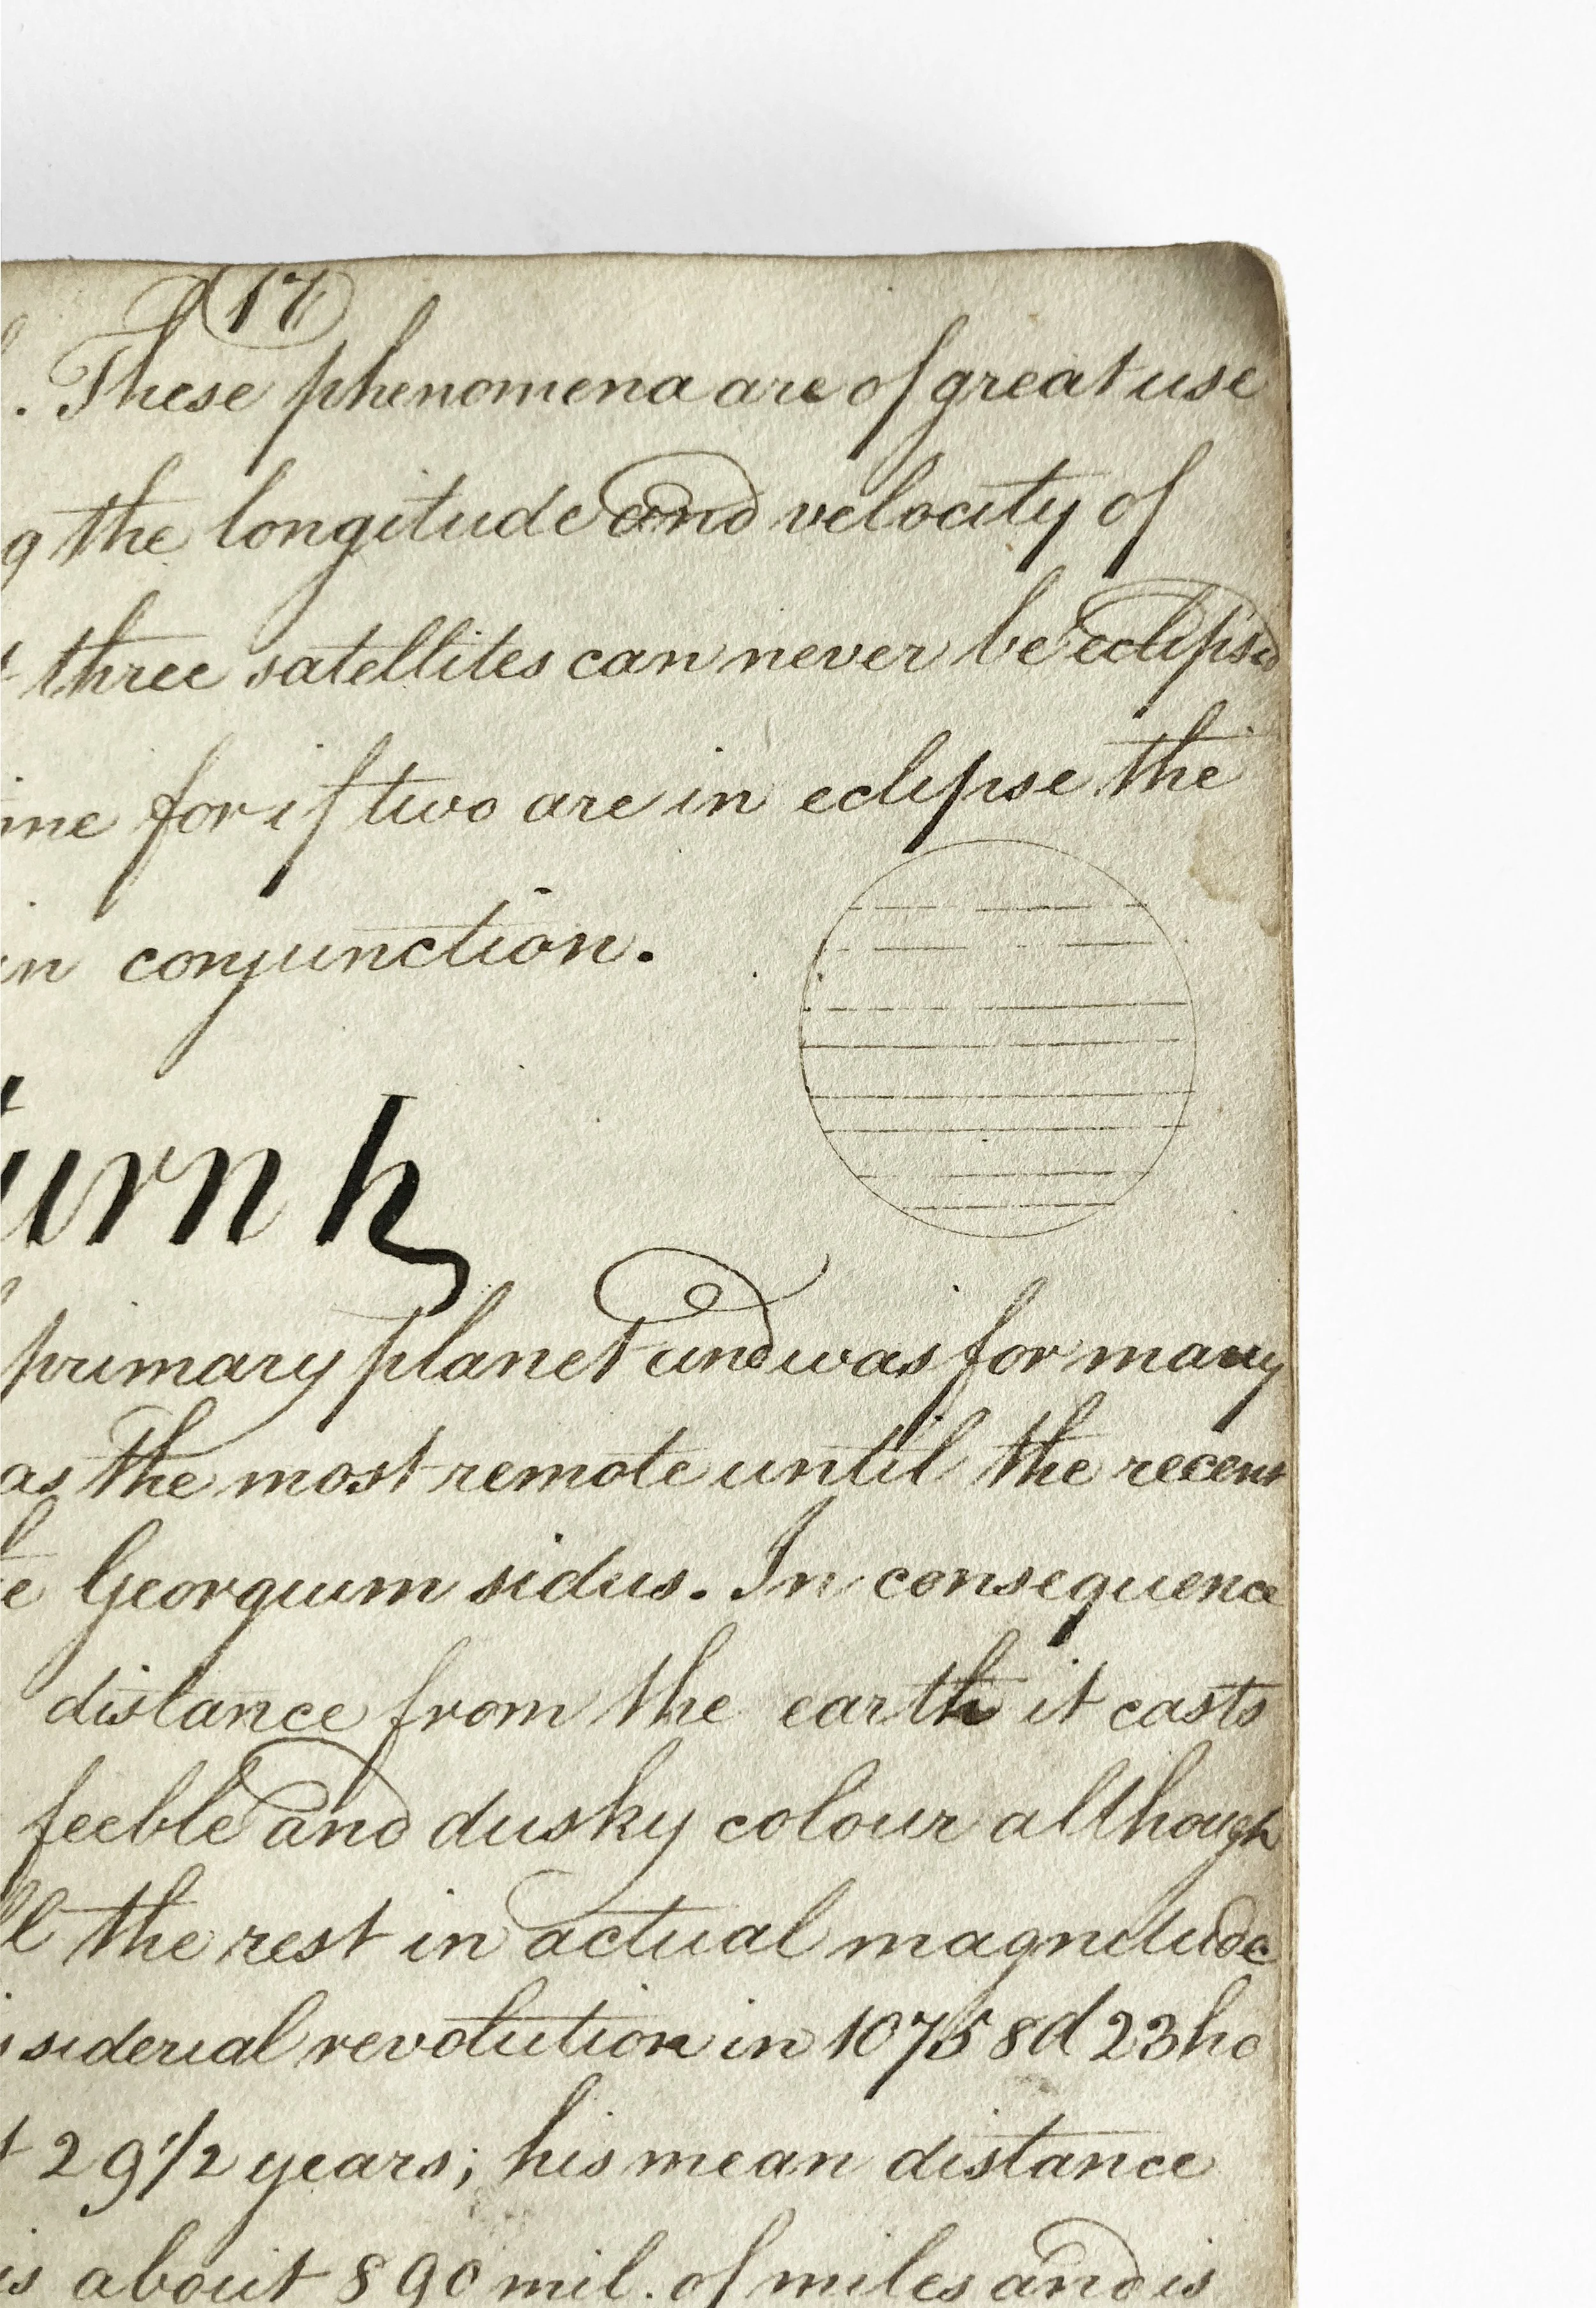 17
. These phenomena are of great use
g the longitude and velocity of
three satellites can never be eclipsd
me for if two are in eclipse the
in conjunction.
urn ♄
primary planet and was for many
as the most remote until the recent
e Georgium sidus. In consequence
distance from the earth it casts
feeble and dusky colour although
ll the rest in actual magnitude
siderial revolution in 10758d 23ho
t 29 1/2 years; his mean distance
is about 890 mil. of miles and is